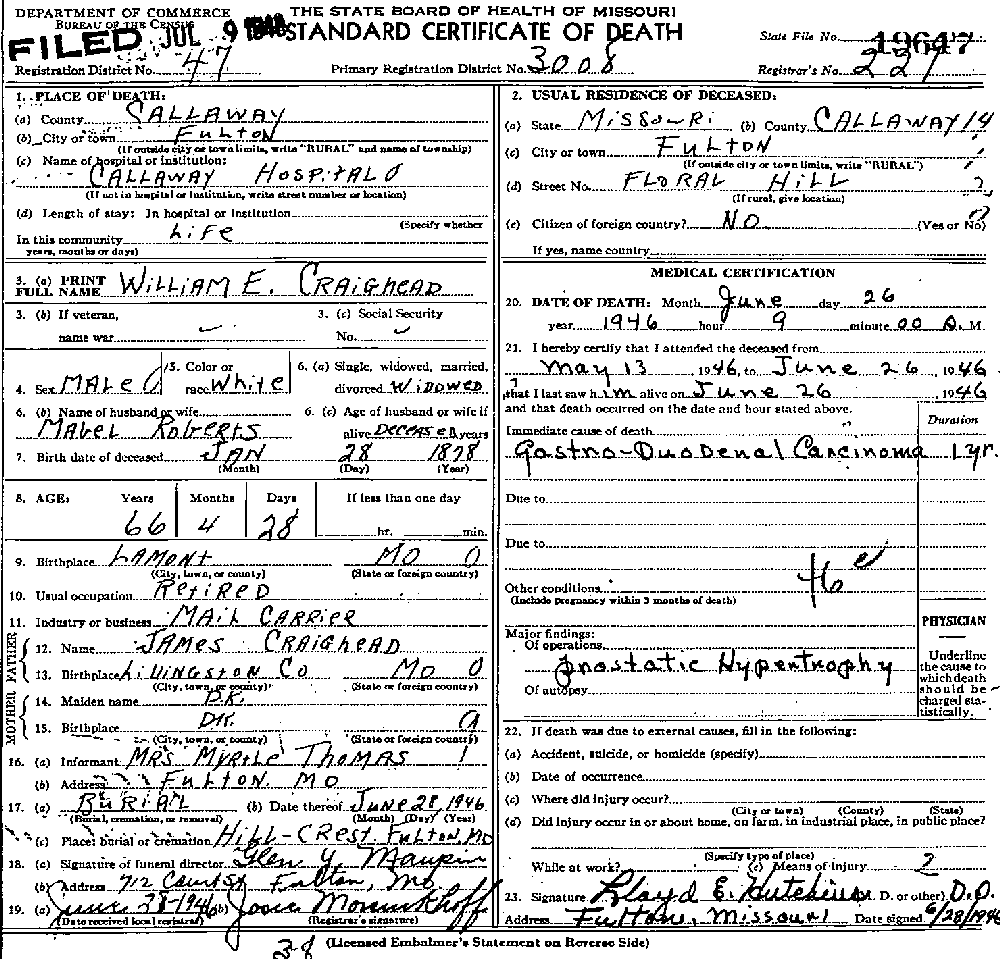 DEPARTMENT OF COMMERCE
BUREAU OF THE CENSUS
THE STATE BOARD OF HEALTH OF MISSOURI
STANDARD CERTIFICATE OF DEATH
FILED JUL 9 1946
State File No. 19647
Registration District No. 47
Primary Registration District No. 3008
Registrar's No. 227
1. PLACE OF DEATH:
(a) County CALLAWAY
(b) City or town FULTON
(If outside city or town limits, write "RURAL" and name of township)
(c) Name of hospital or institution:
CALLAWAY HOSPITAL 0
(If not in hospital or institution, write street number or location)
(d) Length of stay: In hospital or institution
(Specify whether
In this community LIFE
years, months or days)
3. (a) PRINT FULL NAME WILLIAM E. CRAIGHEAD
3. (b) If veteran,
name war
3. (c) Social Security
No.
4. Sex MALE
5. Color or race White
6. (a) Single, widowed, married, divorced WIDOWED
6. (b) Name of husband or wife
MABEL ROBERTS
6. (c) Age of husband or wife if
alive DECEASED years
7. Birth date of deceased JAN 28 1878
(Month) (Day) (Year)
8. AGE: Years Months Days If less than one day
66 4 28 hr. min.
9. Birthplace LAMONT MO 0
(City, town, or county) (State or foreign country)
10. Usual occupation RETIRED
11. Industry or business MAIL CARRIER
FATHER
12. Name JAMES CRAIGHEAD
13. Birthplace LIVINGSTON CO MO 0
(City, town, or county) (State or foreign country)
MOTHER
14. Maiden name D.K.
15. Birthplace DK.
(City, town, or county) (State or foreign country)
16. (a) Informant MRS MYRTLE THOMAS
(b) Address FULTON MO
17. (a) BURIAL (b) Date thereof JUNE 28, 1946
(Burial, cremation, or removal) (Month) (Day) (Year)
(c) Place: burial or cremation HILL-CREST FULTON, MO
18. (a) Signature of funeral director Glen Y. Maupin
(b) Address 712 Court St Fulton, Mo
19. (a) June 28-1946 (b) Josie
(Date received local registrar) (Registrar's signature)
2. USUAL RESIDENCE OF DECEASED:
(a) State MISSOURI (b) County CALLAWAY 14
(c) City or town FULTON
(If outside city or town limits, write "RURAL")
(d) Street No. FLORAL HILL
(If rural, give location)
(e) Citizen of foreign country? NO (Yes or No)
If yes, name country
MEDICAL CERTIFICATION
20. DATE OF DEATH: Month June day 26
year 1946 hour 9 minute 00 A. M.
21. I hereby certify that I attended the deceased from
May 13 1946, to June 26, 1946
that I last saw him alive on June 26, 1946
and that death occurred on the date and hour stated above.
Duration
Immediate cause of death
Gastro-Duodenal Carcinoma 1 yr.
Due to
Due to
46 e
Other conditions
(Include pregnancy within 3 months of death)
Major findings:
Of operations
Prostatic Hypertrophy
Of autopsy
PHYSICIAN
Underline the cause to which death should be charged statistically.
22. If death was due to external causes, fill in the following:
(a) Accident, suicide, or homicide (specify)
(b) Date of occurrence
(c) Where did injury occur?
(City or town) (County) (State)
(d) Did injury occur in or about home, on farm, in industrial place, in public place?
(Specify type of place)
While at work? (e) Means of injury 2
23. Signature Lloyd E. (M. D. or other) D.O.
Address Fulton, Missouri Date signed 6/28/1946
38 (Licensed Embalmer's Statement on Reverse Side)